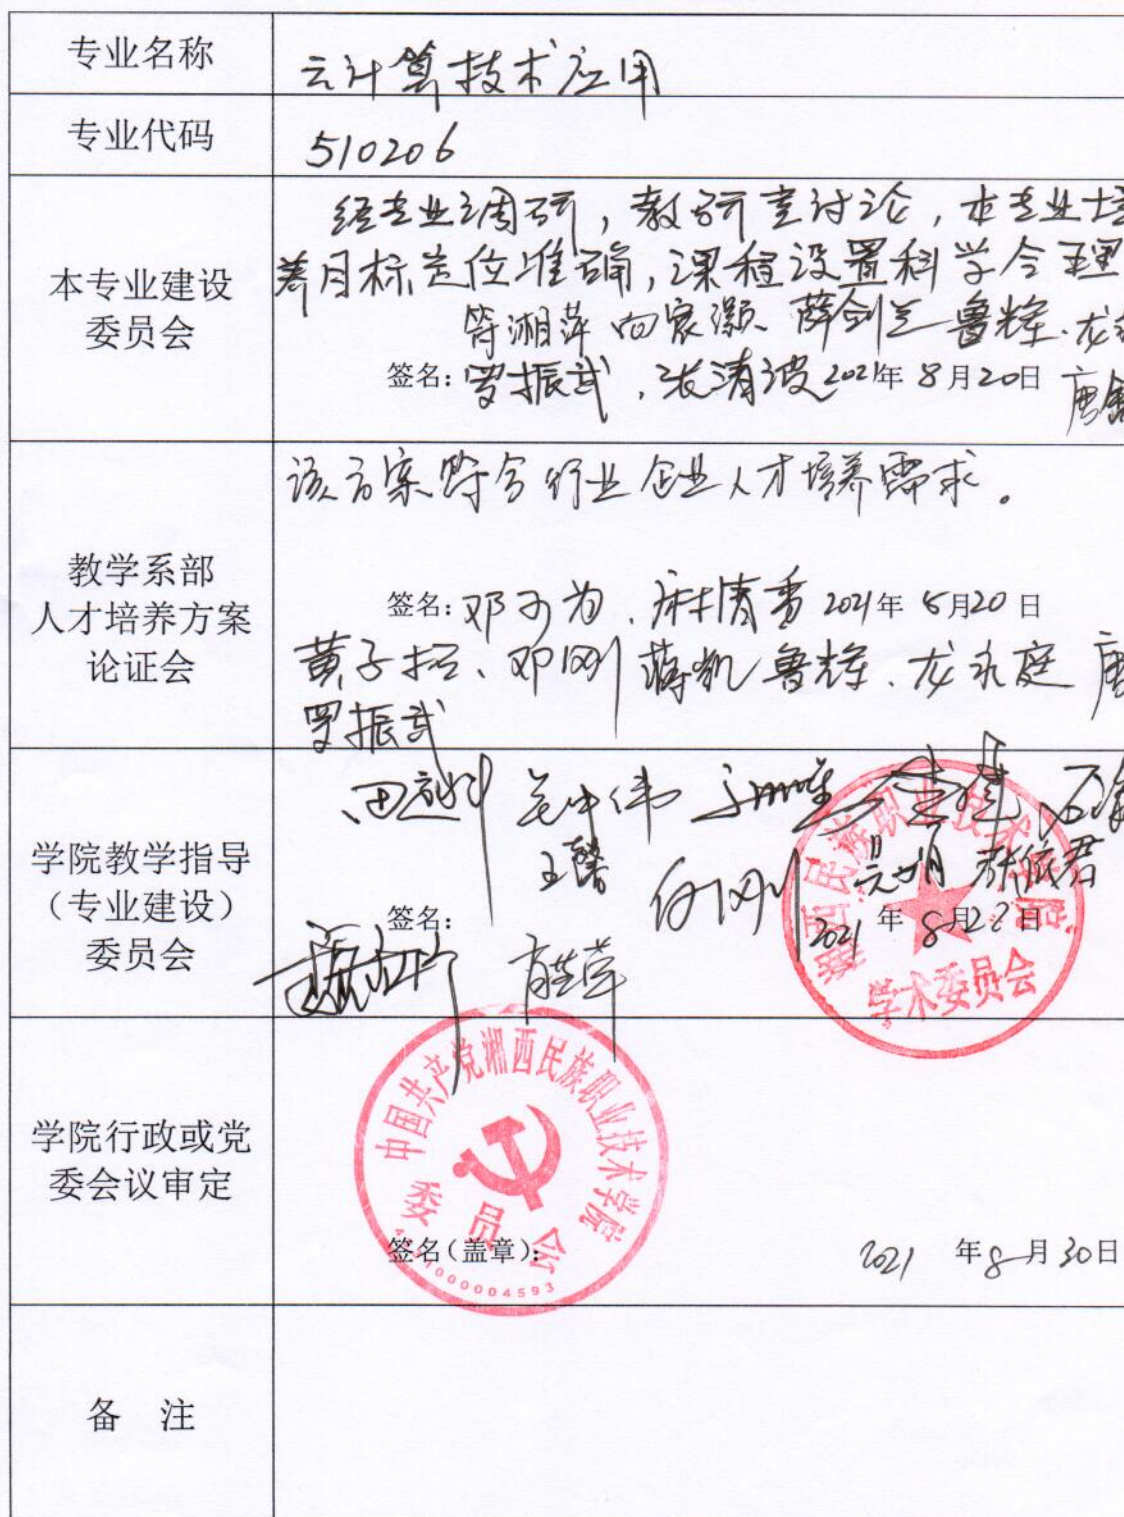 专业名称
云计算技术应用
专业代码
510206
本专业建设
委员会
经专业调研，教研室讨论，本专业培
养目标定位准确，课程设置科学合理
符湘萍 向宸灏 薛剑兰 鲁辉、龙
签名：罗振武，张清波 2021年8月20日 唐
教学系部
人才培养方案
论证会
该方案符合行业企业人才培养需求。
签名：邓子为、麻清香 2021年8月20日
黄子招、邓刚 蒋凯 鲁辉、龙永庭 唐
罗振武
学院教学指导
（专业建设）
委员会
王馨
签名：
向刚 吴明 林依君
2021年8月22日
湘西民族职业技术学院
学术委员会
学院行政或党
委会议审定
中国共产党湘西民族职业技术学院
委员会
4331000004593
签名（盖章）：
2021年8月30日
备 注